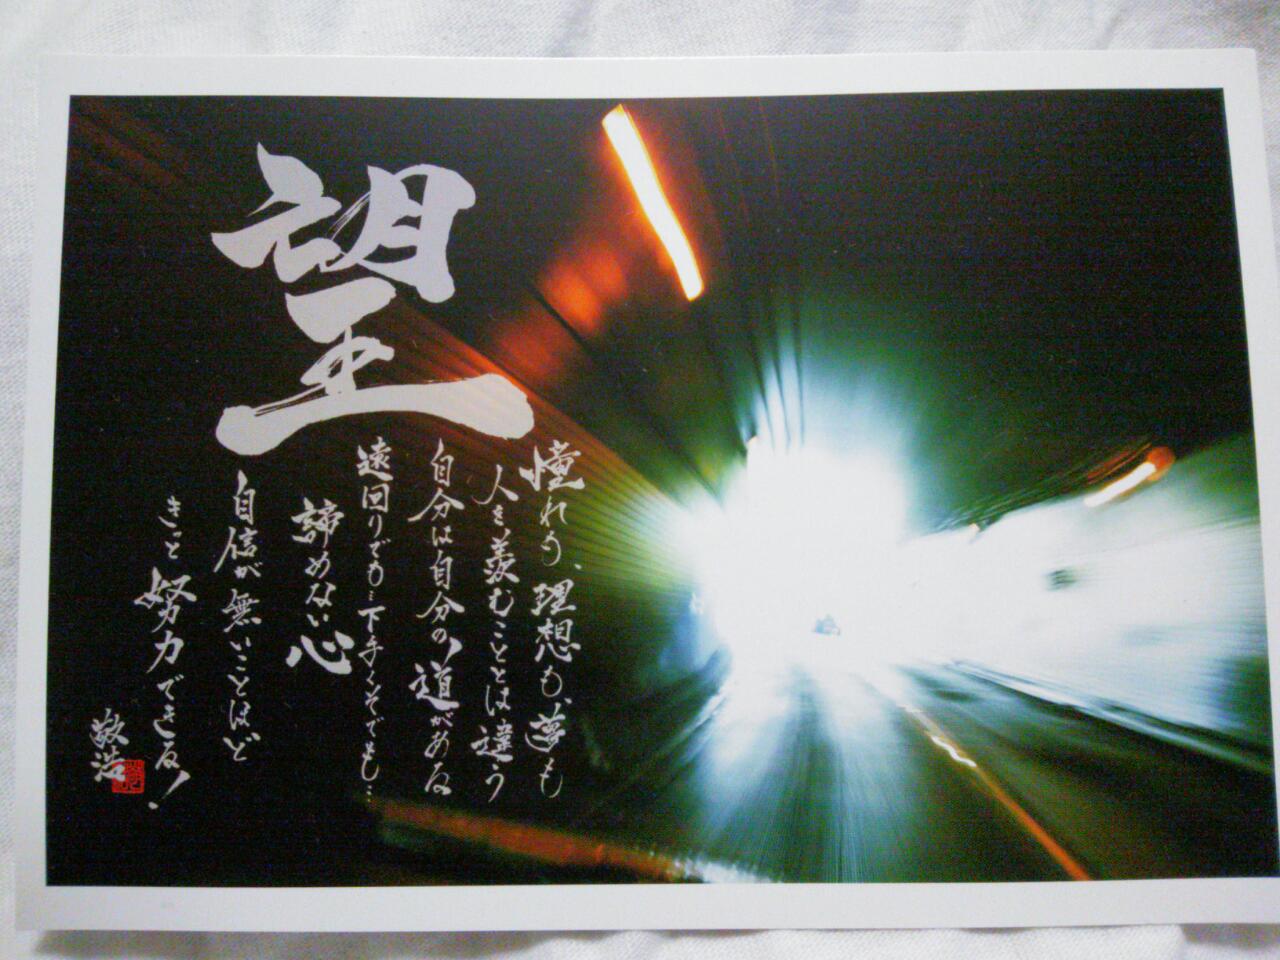 望
憧れも、理想も、夢も
人を羨むこととは違う
自分は自分の道がある
遠回りでも…下手くそでも…
諦めない心
自信が無いことほど
きっと努力できる!
敬浩